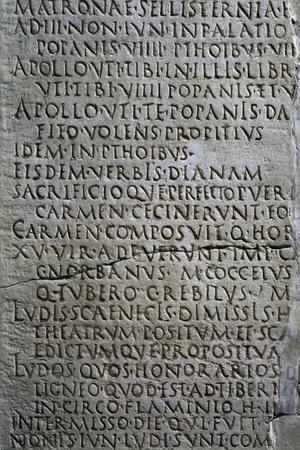 MATRONAE·SELLISTERNIA
AD·III·NON·IVN·IN·PALATIO
POPANIS·VIIII·PTHOIBVS·VII
APOLLO·VTI·TIBI·IN·ILLIS·LIBR
VTI·TIBI·VIIII·POPANIS·ET·V
APOLLO·VTI·TE·POPANIS·DA
FITO·VOLENS·PROPITIVS
IDEM·IN·PTHOIBVS·
EISDEM·VERBIS·DIANAM
SACRIFICIOQVE·PERFECTO·PVER
CARMEN·CECINERVNT·EO
CARMEN·COMPOSVIT·Q·HOR
XV·VIR·ADFVERVNT·IMP·C
CN·VRBANVS·M·COCCEIVS
Q·TVBERO·C·REBILVS·M
LVDIS·SCAENICIS·DIMISSIS·H
THEATRVM·POSITVM·ET·SCA
EDICTVMQVE·PROPOSITVM
LVDOS·QVOS·HONORARIOS
LIGNEO·QVOD·EST·AD·TIBERI
IN·CIRCO·FLAMINIO·H·II
INTERMISSO·DIE·QVI·FVIT
NONIS·IVN·LVDI·SVNT·COM